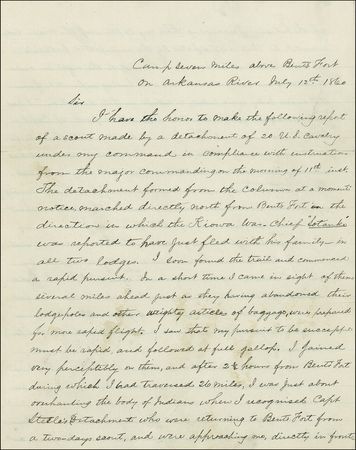 Camp seven miles above Bents Fort
on Arkansas River July 12th 1860
Sir
I have the honor to make the following report
of a scout made by a detachment of 20 U.S. Cavalry
under my command in compliance with instruction
from the major commanding on the morning of 11th inst.
The detachment formed from the Column at a moment
notice, marched directly north from Bents Fort in the
direction in which the Kiowa War Chief "Satank"
was reported to have just fled with his family in
all two lodges. I soon found the trail and commenced
a rapid pursuit. In a short time I came in sight of them
several miles ahead just as they having abandoned their
lodgepoles and other weighty articles of baggage, were prepared
for more rapid flight. I saw that my pursuit to be successful
must be rapid, and followed at full gallop. I gained
very perceptibly on them, and after 2½ hours from Bents Fort
during which I had traversed 26 miles, I was just about
overhauling the body of Indians when I recognised Capt
Steele's Detachment who were returning to Bents Fort from
a two-days scout, and were approaching me, directly in front